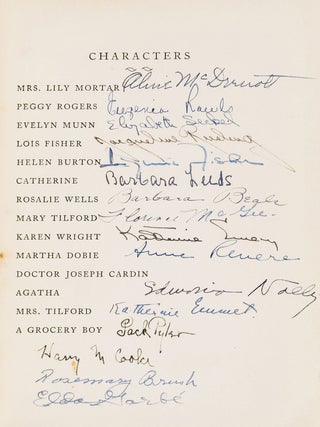 CHARACTERS
MRS. LILY MORTAR Aline McDermott
PEGGY ROGERS Eugenia Rawls
EVELYN MUNN Elizabeth Seckel
LOIS FISHER Jacqueline Rusling
HELEN BURTON
CATHERINE Barbara Leeds
ROSALIE WELLS Barbara Beals
MARY TILFORD Florence McGee
KAREN WRIGHT Katherine Emery
MARTHA DOBIE Anne Revere
DOCTOR JOSEPH CARDIN
AGATHA Edmonia Nolley
MRS. TILFORD Katherine Emmet
A GROCERY BOY Jack Tyler
Harry M Cooke
Rosemary Brush